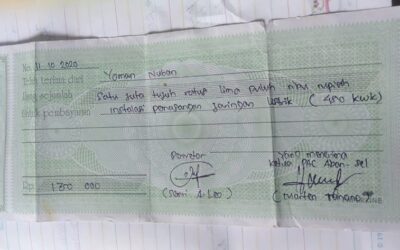 No. 11. 10. 2020
Telah terima dari Yoman Nuban
Uang sejumlah Satu juta tujuh ratus lima puluh ribu rupiah
Untuk pembayaran instalasi pemasangan jaringan listrik ( 450 kwh)
yang menerima
Pemotor
Ketua PAC Aban - sel
Rp. 1.750 000